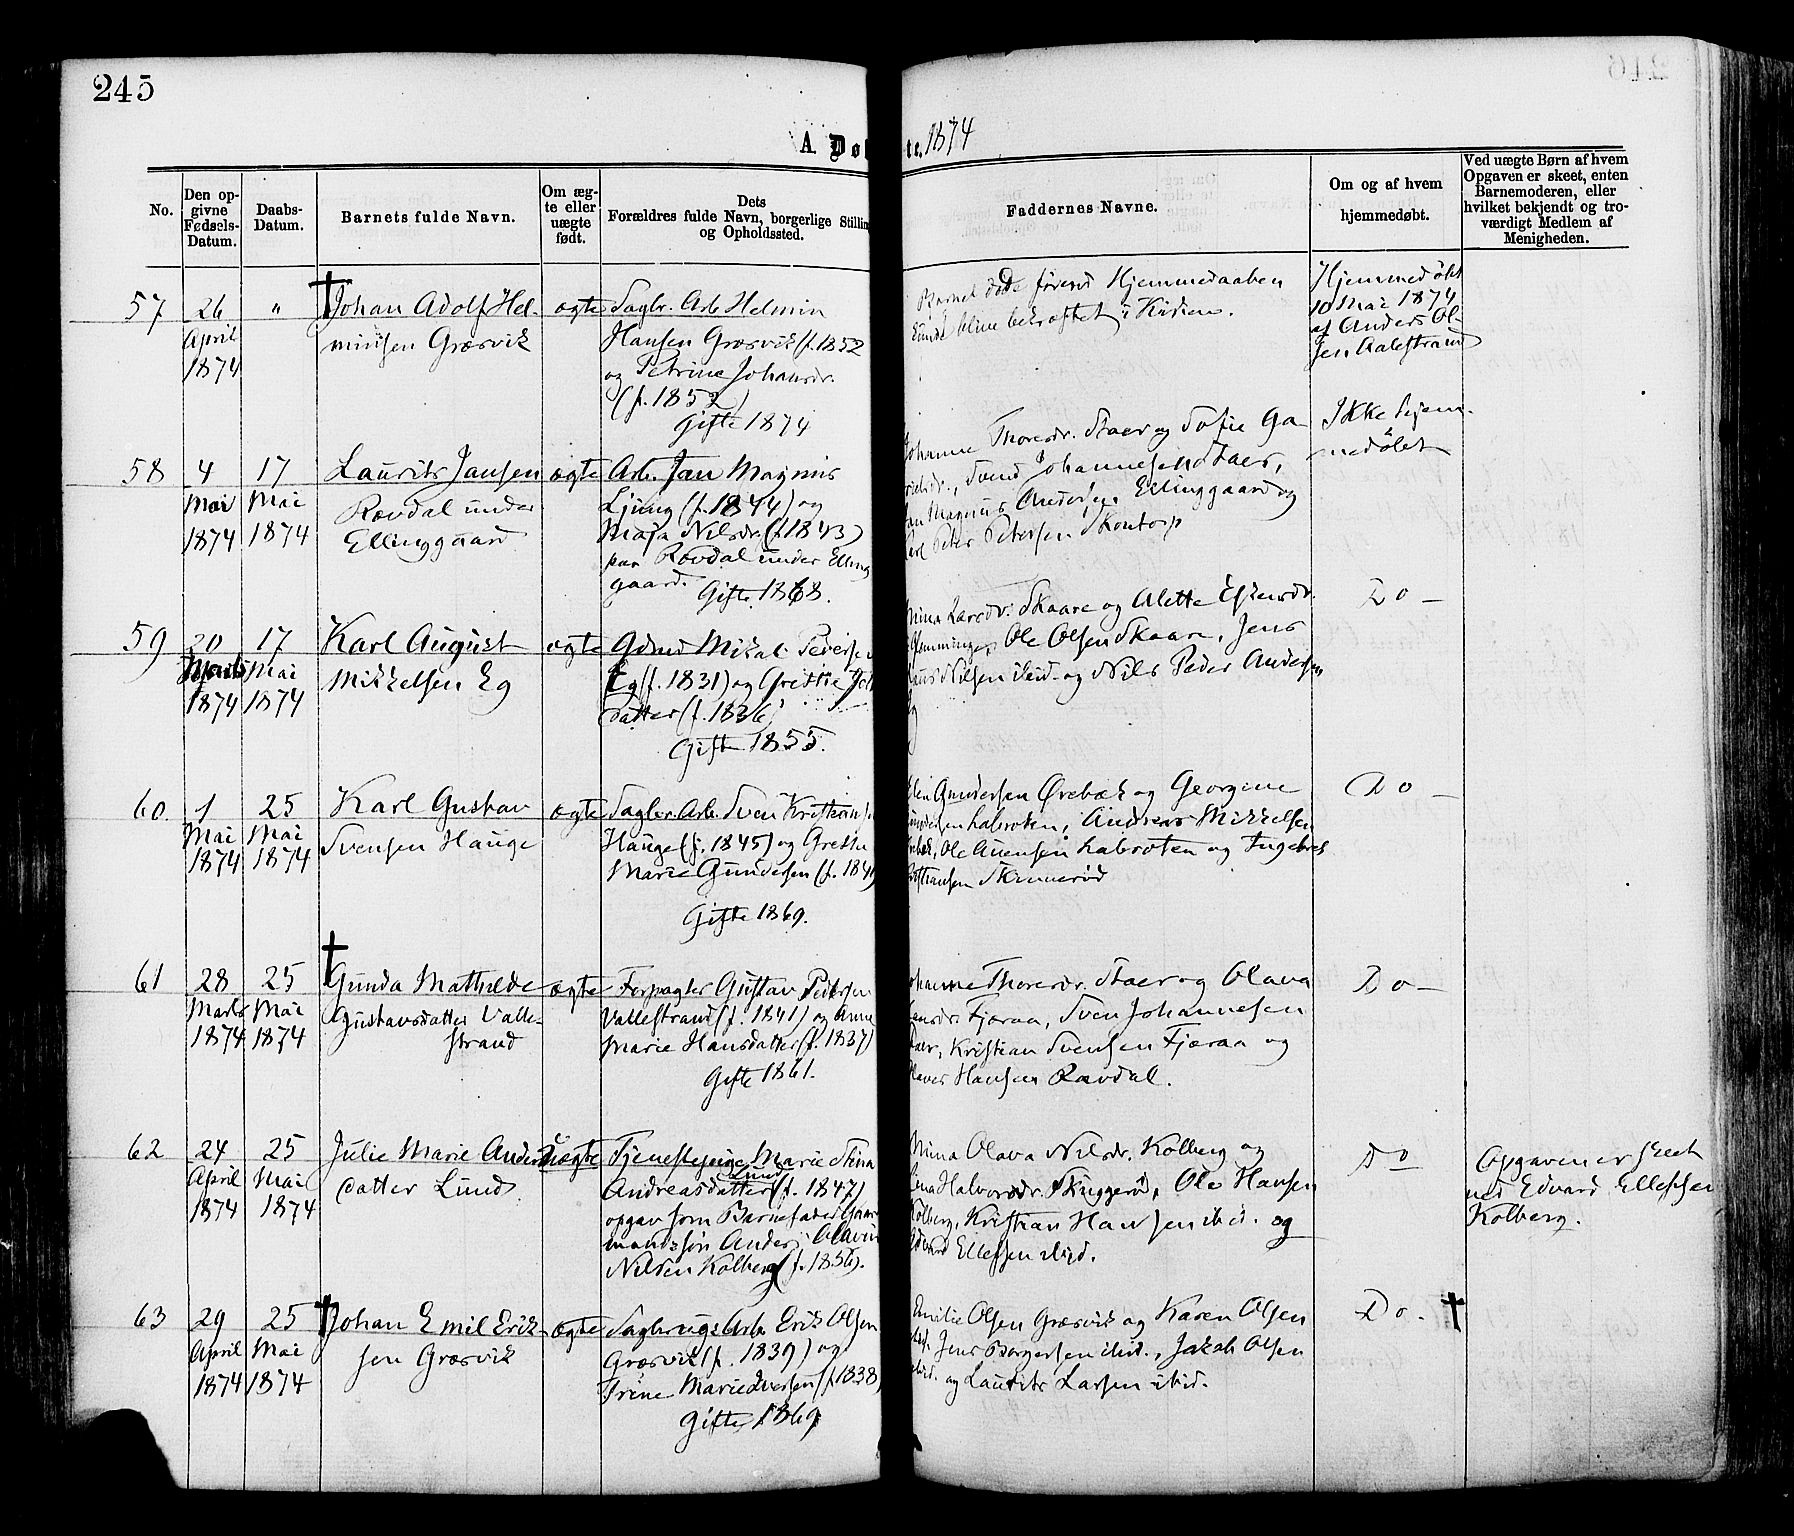 245
A. Døbte. 1874
No.
Den opgivne Fødsels-Datum.
Daabs-Datum.
Barnets fulde Navn.
Om ægte eller uægte født.
Dets Forældres fulde Navn, borgerlige Stilling og Opholdssted.
Faddernes Navne.
Om og af hvem hjemmedøbt.
Ved uægte Børn af hvem Opgaven er skeet, enten Barnemoderen, eller hvilket bekjendt og troværdigt Medlem af Menigheden.
57
26
April
1874
"
† Johan Adolf Hel-
minsen Græsvik
ægte
Sagbr. Arb. Helmin
Hansen Græsvik (f. 1852
og Petrine Johansdr.
(f. 1852)
Gifte 1874
Barnet døde førend Hjemmedaaben
kunde blive bekræftet i Kirken.
Hjemmedøbt
10 Mai 1874
af Anders Ol-
sen Aalestrand
58
4
Mai
1874
17
Mai
1874
Laurits Jansen
Rævdal under
Ellinggaard
ægte
Arb. Jan Magnus
Ljung (f. 1844) og
Maja Nilsdr. (f. 1843)
paa Rævdal under Elling
gaard.
Gifte 1868.
Johanne Thoresdr. Staer og Sofie Ga-
Svend Johannesen Staer,
Jan Magnus Andersen Ellinggaard og
Karl Peter Petersen Skontorp
Ikke hjem-
medøbt
59
20
Marts
1874
17
Mai
1874
Karl August
Mikkelsen Eg
ægte
Gdmd Mikal Pedersen
Eg (f. 1831) og Grethe
datter (f. 1836)
Gifte 1855.
Mina Larsdr. Skaare og Alette Eskensdr.
Glemminge, Ole Olsen Skaare, Jens
Hans Nilsen ibid. og Nils Peder Andersen
Eg
Do –
60.
1
Mai
1874
25
Mai
1874
Karl Gustav
Svensen Hauge
ægte
Sagbr. Arb. Sven Kristians
Hauge (f. 1845) og Grethe
Marie Gundersen (f. 184
Gifte 1869.
Gundersen Ørebæk og Georgine
Gundersen Labroten, Andreas Mikkelsen
Ørebæk, Ole Auensen Labroten og Ingebret
Kristiansen Skinnerød
Do –
61
28
Marts
1874
25
Mai
1874
† Gunda Mathilde
Gustavsdatter Valle-
strand
ægte
Forpagter Gustav Petersen
Vallestrand (f. 1841) og Anne
Marie Hansdatter (f. 1837)
Gifte 1861.
Johanne Thoresdr. Staer og Olava
Fjæraa, Sven Johannesen
Staer, Kristian Svensen Fjæraa og
Olaves Hansen Rævdal.
Do –
62
24
April
1874
25
Mai
1874
Julie Marie Anders
datter Lund
uægte
Tjenestepige Marie Stina
Andreasdatter Lund (f. 1847)
opgav som Barnefader Gaard-
mandssøn Anders Olavus
Nilsen Kolberg (f. 1856).
Mina Olava Nilsdr. Kolberg og
Lina Halvorsdr. Skuggerød, Ole Hansen
Kolberg, Kristian Hansen ibid. og
Edvard Ellefsen ibid.
Do
Opgaven er skeet
ved Edvard Ellefsen
Kolberg.
63
29
April
1874
25
Mai
1874
† Johan Emil Erik-
sen Græsvik
ægte
Sagbrugs Arb. Erik Olsen
Græsvik (f. 1839) og
Trine Marie Iversen (f. 1838)
Gifte 1869
Emilie Olsen Græsvik og Karen Olsen
ibid. Jens Borgersen ibid., Jakob Olsen
ibid. og Laurits Larsen ibid.
Do. †